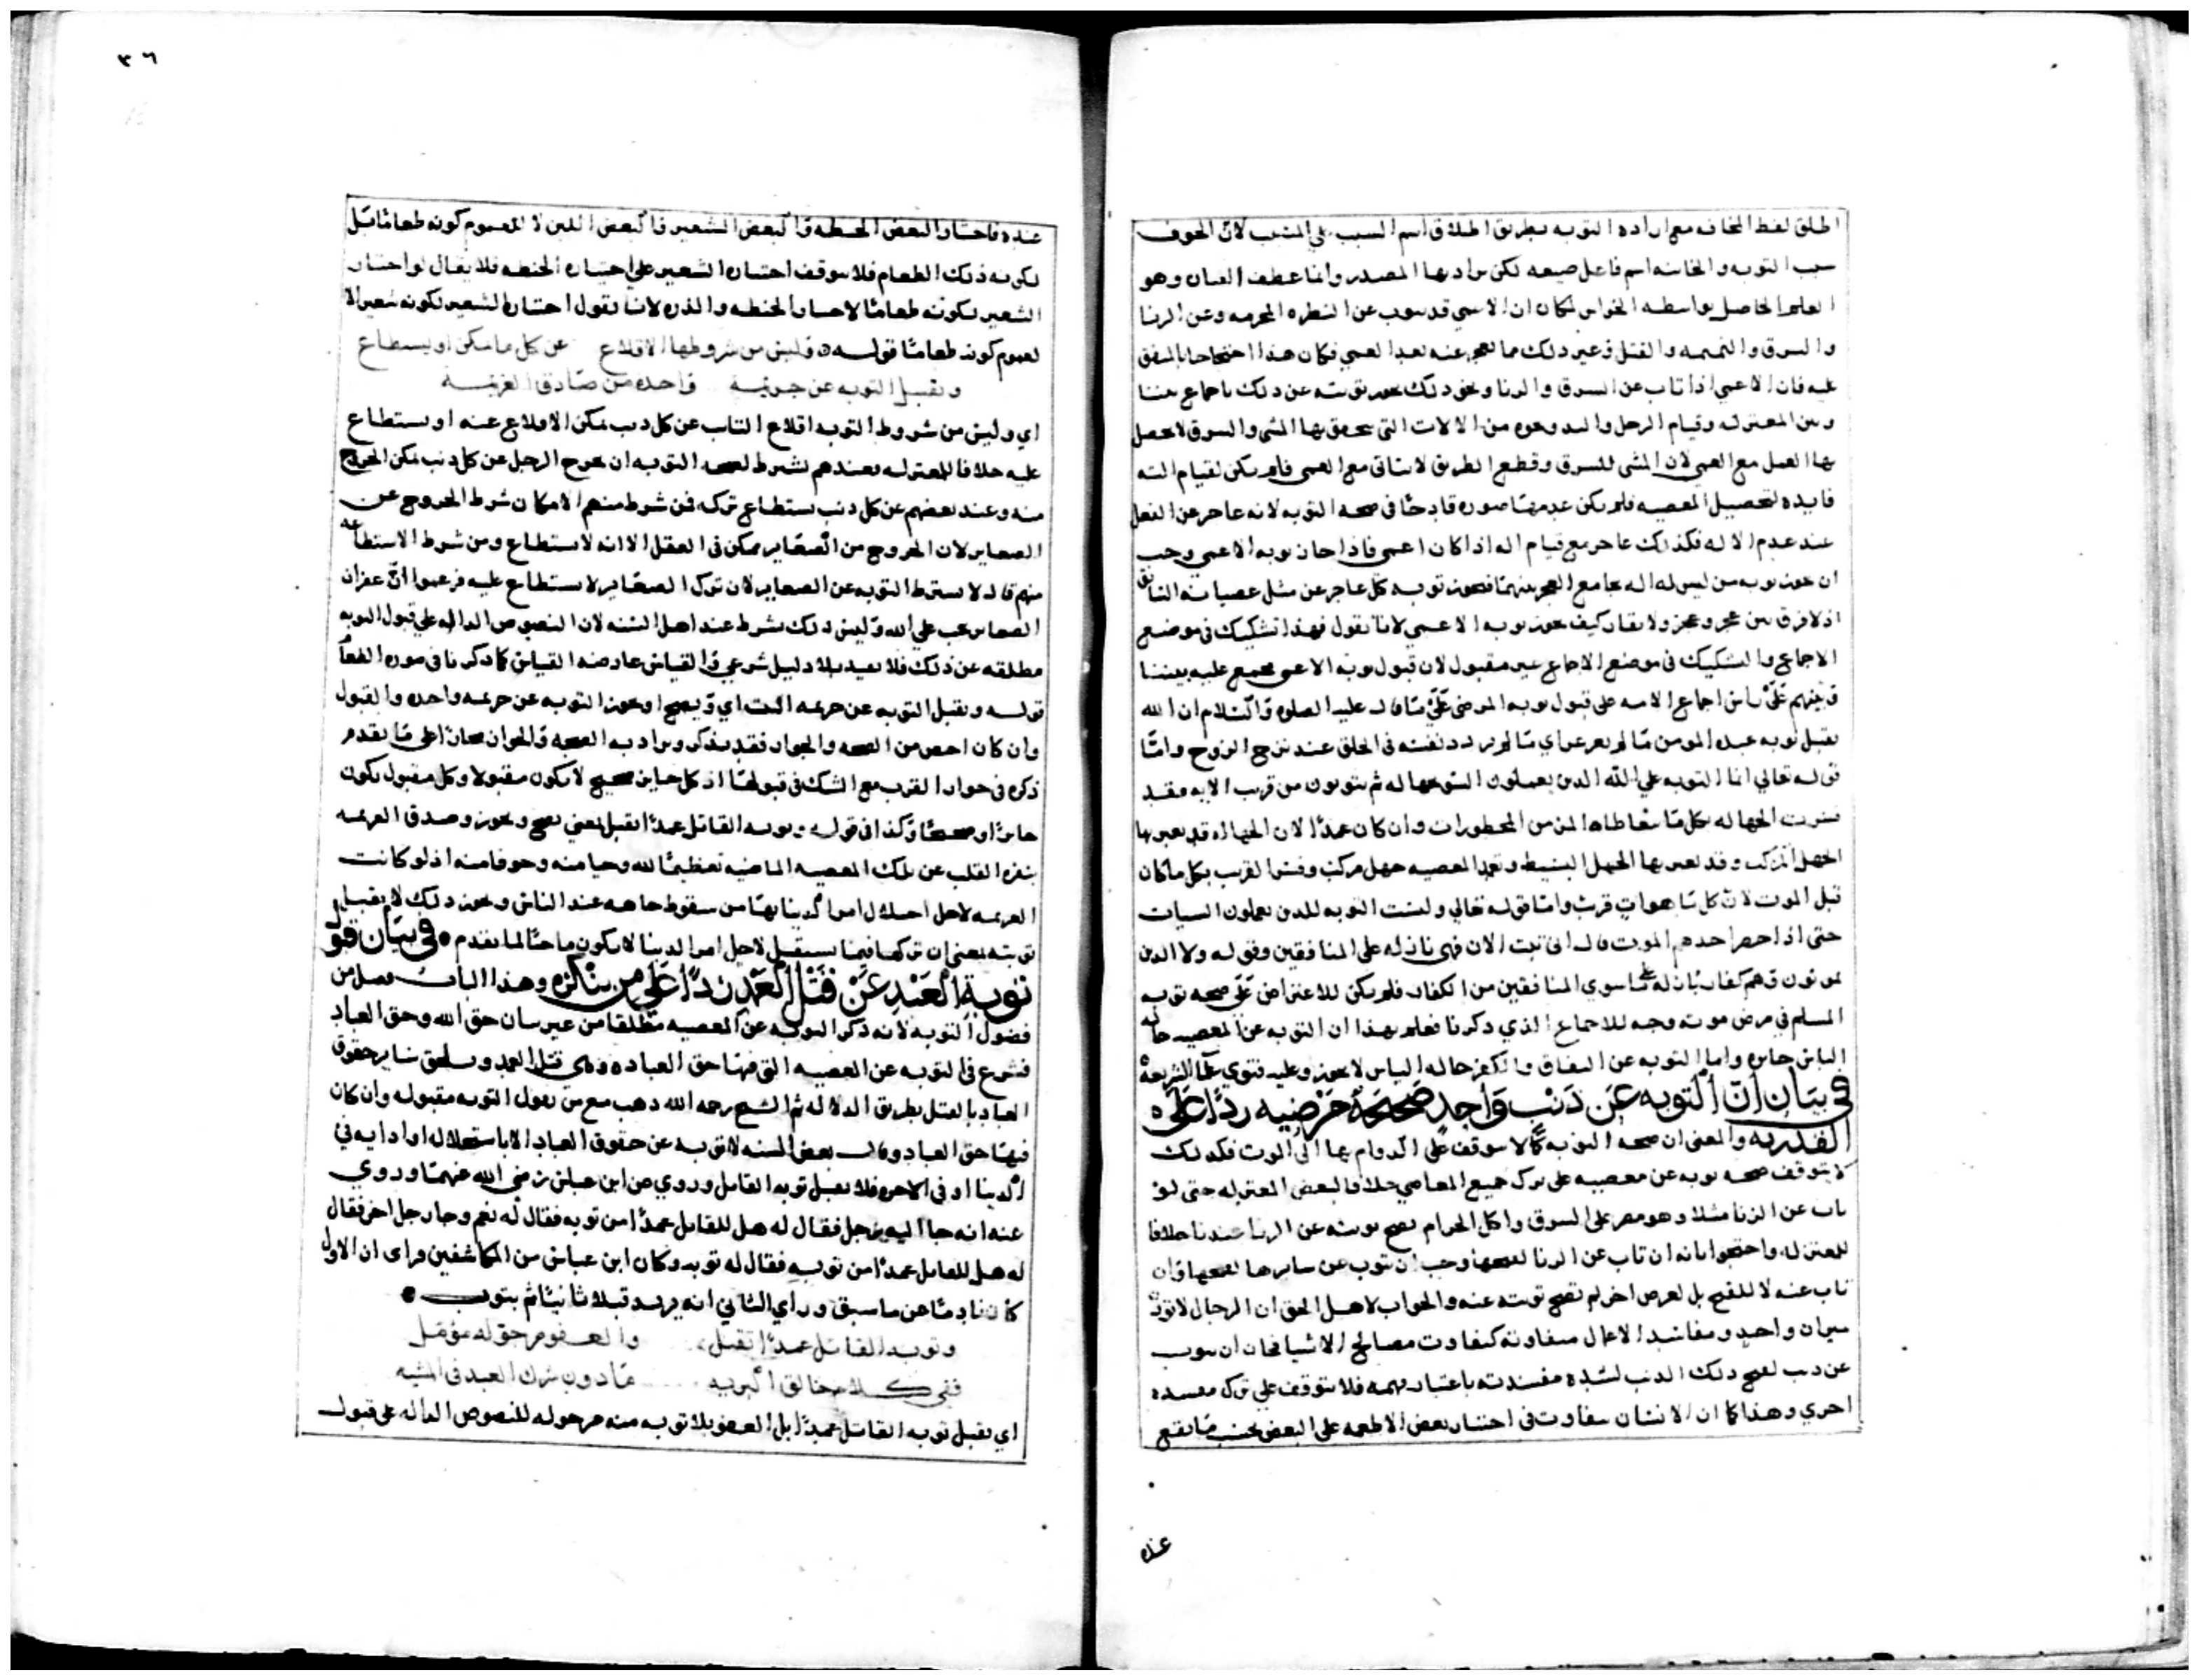 اطلق لفظ المخافه مع اراده التوبه بطريق اطلاق اسم السبب علي المسبب لان الخوف
سبب التوبه والخاينه اسم فاعل صيعه لكن يراد بها المصدر وانما عطف العيان وهو
العلم الحاصل بواسطه الحواس لمكان ان الاعمي قد يتوب عن النظره المحرمه وعن الزنا
والسرق والنميمه والقتل وغير ذلك مما يعجز عنه بعد العمي فكان هذا احتجاجا بالمتفق
عليه فان الاعمي اذا تاب عن السرق والزنا ونحو ذلك يجوز توبته عن ذلك باجماع بيننا
وبين المعتزله وقيام الرجل واليد ونحوه من الالات التي يتحقق بها المشي والسرق لا يحصل
بها العمل مع العمي لان المشي للسرق وقطع الطريق لا يتاتي مع العمي فلم يكن لقيام الته
فايده لتحصيل المعصيه فلم يكن عدمها صوره قادحا في صحه التوبه لانه عاجز عن الفعل
عند عدم الاله فكذلك عاجز مع قيام اله اذا كان اعمي فاذا جاز توبه الاعمي وجب
ان يجوز توبه من ليس له اله بجامع العجز بينهما فيجوز توبه كل عاجز عن مثل عصيانه السابق
اذ لا فرق بين عجز وعجز ولا يقال كيف يجوز توبه الاعمي لانا نقول فهذا تشكيك في موضع
الاجماع والتشكيك في موضع الاجماع غير مقبول لان قبول توبه الاعمي مجمع عليه بيننا
وبينهم علي ان اجماع الامه علي قبول توبه المرضي علي ما قال عليه الصلوه والسلام ان الله
يقبل توبه عبده المومن ما لم يغرغر اي ما لم يردد نفسه في الحلق عند نزع الروح واما
قوله تعالي انما التوبه علي الله الذين يعملون السو بجهاله ثم يتوبون من قريب الايه فقد
فسرت الجهاله بكل ما يتعاطاه المر من المحظورات وان كان عمدا لان الجهاله قد يعبر بها
الجهل المركب وقد يعبر بها الجهل البسيط وتعمد المعصيه جهل مركب وفسر القريب بكل ما كان
قبل الموت لان كل ما هو ات قريب واما قوله تعالي وليست التوبه للذين يعملون السيات
حتي اذا حضر احدهم الموت قال اني تبت الان فهي نازله علي المنافقين وقوله ولا الذين
يموتون وهم كفار نازله علي ما سوي المنافقين من الكفار فلم يكن للاعتراض علي صحه توبه
المسلم في مرض موته وجه للاجماع الذي ذكرنا فعلم بهذا ان التوبه عن المعصيه حاله
الباس جايزه واما التوبه عن النفاق والكفر حاله الباس لا يجوز وعليه فتوي علما الشريعه
في بيان ان التوبه عن ذنب واحد صحيحة مرضيه ردا علي
القدريه والمعني ان صحه التوبه كما لا يتوقف علي الدوام بها الي الموت فكذلك
لا يتوقف صحه توبه عن معصيه علي ترك جميع المعاصي خلافا لبعض المعتزله حتي لو
تاب عن الزنا مثلا وهو مصر علي السرق واكل الحرام يصح توبته عن الزنا عندنا خلافا
للمعتزله واحتجوا بانه ان تاب عن الزنا لقبحها وجب ان يتوب عن سايرها لقبحها وان
تاب عنه لا للقبح بل لغرض اخر لم تصح توبته عنه والجواب لاهل الحق ان الرجال لا توزن
بميزان واحد ومفاسد الاعمال متفاوته كتفاوت مصالح الاشيا فجاز ان يتوب
عن ذنب لقبح ذلك الذنب لشده مفسدته باعتبار فهمه فلا يتوقف علي ترك مفسده
اخري وهذا كما ان الانسان يتفاوت في اختيار بعض الاطعمه علي البعض بحسب ما يقع
عنده
٣٦
عنده فاختار البعض الحنطه والبعض الشعير والبعض اللبن لا لعموم كونه طعاما بل
لكونه ذلك الطعام فلا يتوقف اختيار الشعير علي اختياره الحنطه فلا يقال لو اختار
الشعير لكونه طعاما لاختار الحنطه والذره لانا نقول اختياره الشعير لكونه شعيرا لا
لعموم كونه طعاما قوله وليس من شروطها الاقلاع عن كل ما يمكن او يستطاع
وتقبل التوبه عن جريمة واحده من صادق العزيمة
اي وليس من شروط التوبه اقلاع التايب عن كل ذنب يمكن الاقلاع عنه او يستطاع
عليه خلافا للمعتزله فعندهم يشترط لصحه التوبه ان يخرج الرجل عن كل ذنب يمكن الخروج
منه وعند بعضهم عن كل ذنب يستطاع تركه فمن شرط منهم الامكان شرط الخروج عن
الصغاير لان الخروج من الصغاير ممكن في العقل الا انه لا يستطاع ومن شرط الاستطاعه
منهم قال لا يشترط التوبه عن الصغاير لان ترك الصغاير لا يستطاع عليه فزعموا ان غفران
الصغاير يجب علي الله وليس ذلك بشرط عند اهل السنه لان النصوص الداله علي قبول التوبه
مطلقه عن ذلك فلا يقيد بلا دليل شرعي والقياس عارضه القياس كما ذكرنا في صوره الطعام
قوله وتقبل التوبه عن جريمه البيت اي ويصح او يجوز التوبه عن جريمه واحده والقبول
وان كان اخص من الصحه والجواز فقد يذكر ويراد به الصحه والجواز مجازا علي ما يقدم
ذكره في جواز القرب مع الشك في قبولها اذ كل جايز صحيح لا يكون مقبولا وكل مقبول يكون
جايزا وصحيحا وكذا في قوله وتوبه القاتل عمدا تقبل بمعني يصح ويجوز وصدق العزيمه
بنفره القلب عن تلك المعصيه الماضيه تعظيما لله وحيا منه وخوفا منه اذ لو كانت
العزيمه لاجل اختلال امر الدنيا بها من سقوط جاهه عند الناس ونحو ذلك لا يقبل
توبته بمعني ان تركها فيما يستقبل لاجل امر الدنيا لا يكون ماحيا لما يقدم • في بيان قبول
توبة العبد عن قتل العمد ردا علي من ينكره وهذا الباب فصل من
فضول التوبه لانه ذكر التوبه عن المعصيه مطلقا من غير بيان حق الله وحق العباد
فشرع في التوبه عن المعصيه التي فيها حق العباده وهي قتل العمد ويلحق ساير حقوق
العباد بالقتل بطريق الدلاله ثم الشيخ رحمه الله ذهب مع من يقول التوبه مقبوله وان كان
فيها حق العباد وقال بعض السنه لا توبه عن حقوق العباد الا باستحلاله او ادايه في
الدنيا او في الاخره فلا يقبل توبه القاتل وروي عن ابن عباس رضي الله عنهما وروي
عنه انه جا اليه رجل فقال له هل للقاتل عمدا من توبه فقال له نعم وجا رجل اخر فقال
له هل للقاتل عمدا من توبه فقال له توبه وكان ابن عباس من المكاشفين وراي ان الاول
كان نادما عن ما سبق وراي الثاني انه يريد قتلا ثانيا ثم يتوب •
وتوبه القاتل عمدا تقبل والعفو مرجو له مؤمل
ففي كلام خالق البريه ما دون شرك العبد في المشيه
اي تقبل توبه القاتل عمدا بل العفو بلا توبه منه مرجو له للنصوص الداله علي قبول